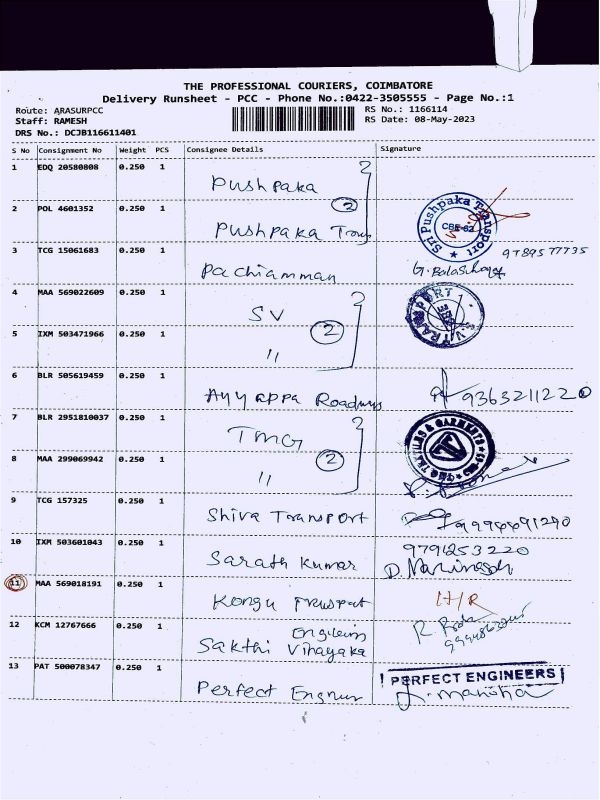 THE PROFESSIONAL COURIERS, COIMBATORE
Delivery Runsheet - PCC - Phone No.:0422-3505555 - Page No.:1
Route: ARASURPCC
Staff: RAMESH
DRS No.: DCJB116611401
RS No.: 1166114
RS Date: 08-May-2023
S No Consignment No Weight PCS Consignee Details Signature
1 EDQ 20580808 0.250 1 Pushpaka
2 POL 4601352 0.250 1 Pushpaka Trans 2
Sri Pushpaka Transport CBE-62
3 TCG 15061683 0.250 1 Pachiamman 9789577735
4 MAA 569022609 0.250 1 SV
5 IXM 503471966 0.250 1 " 2
6 BLR 505619459 0.250 1 Ayyappa Roadways 9363211220
7 BLR 2951810037 0.250 1 TMG
8 MAA 299069942 0.250 1 " 2
9 TCG 157325 0.250 1 Shiva Transport
10 IXM 503601043 0.250 1 Sarath Kumar 9791253220
11 MAA 569018191 0.250 1 Kongu Transport
12 KCM 12767666 0.250 1 Sakthi Vinayaka
13 PAT 500078347 0.250 1 Perfect
PERFECT ENGINEERS